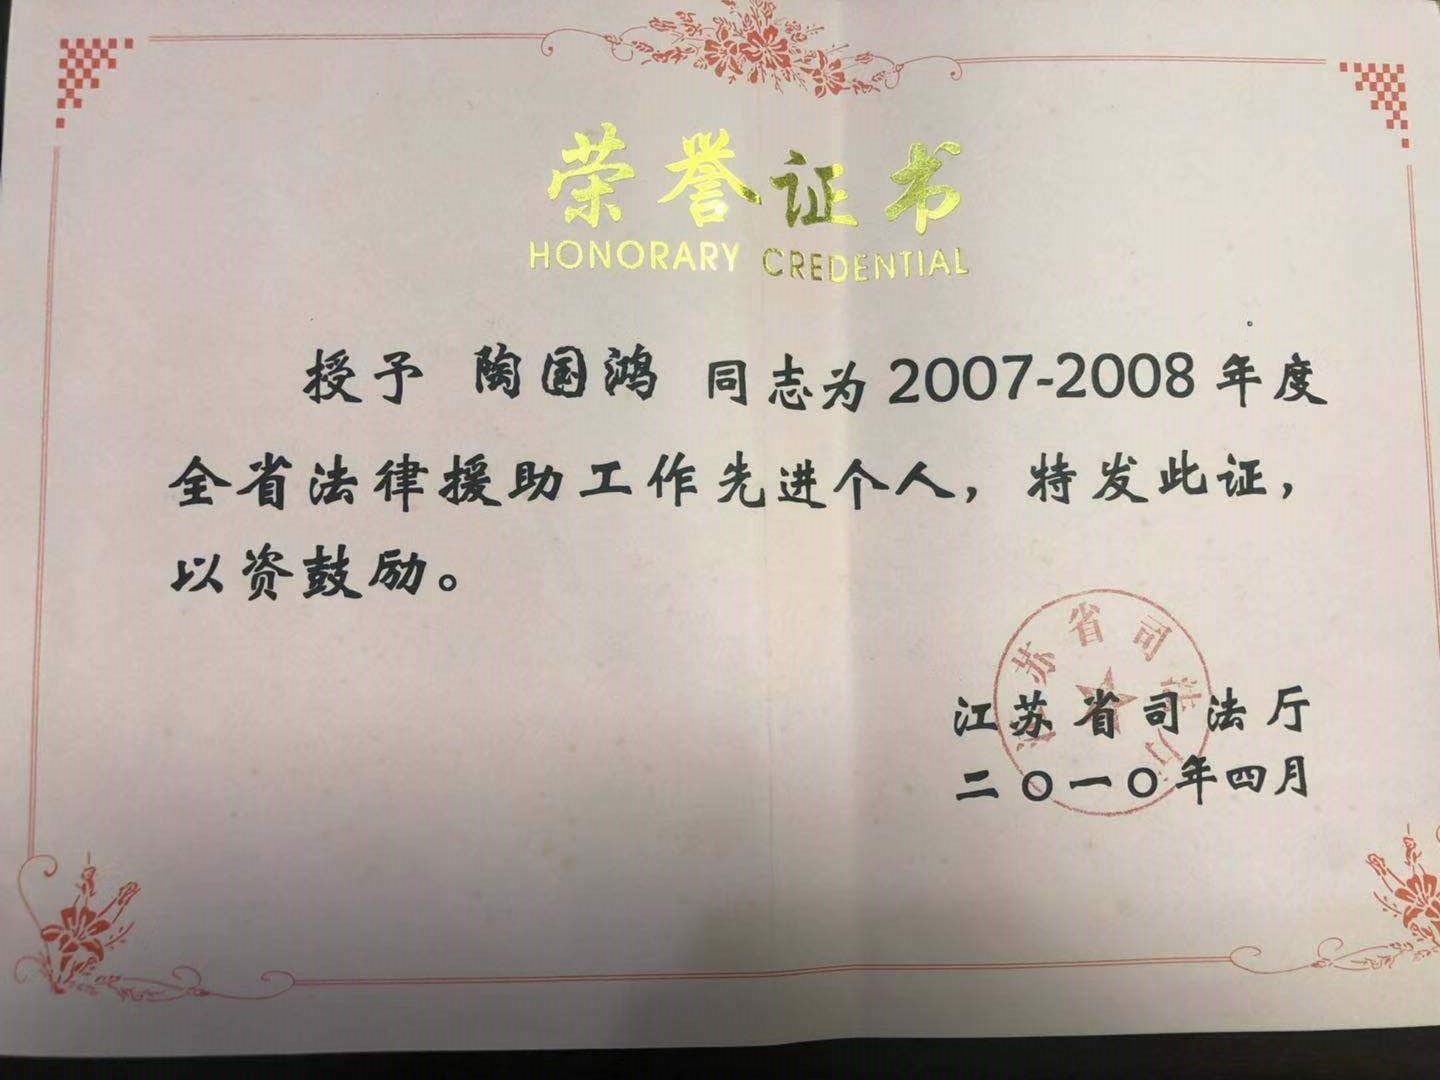 荣誉证书
HONORARY CREDENTIAL
授予 陶国鸿 同志为2007-2008年度
全省法律援助工作先进个人，特发此证，
以资鼓励。
江苏省司法厅
江苏省司法厅
二〇一〇年四月